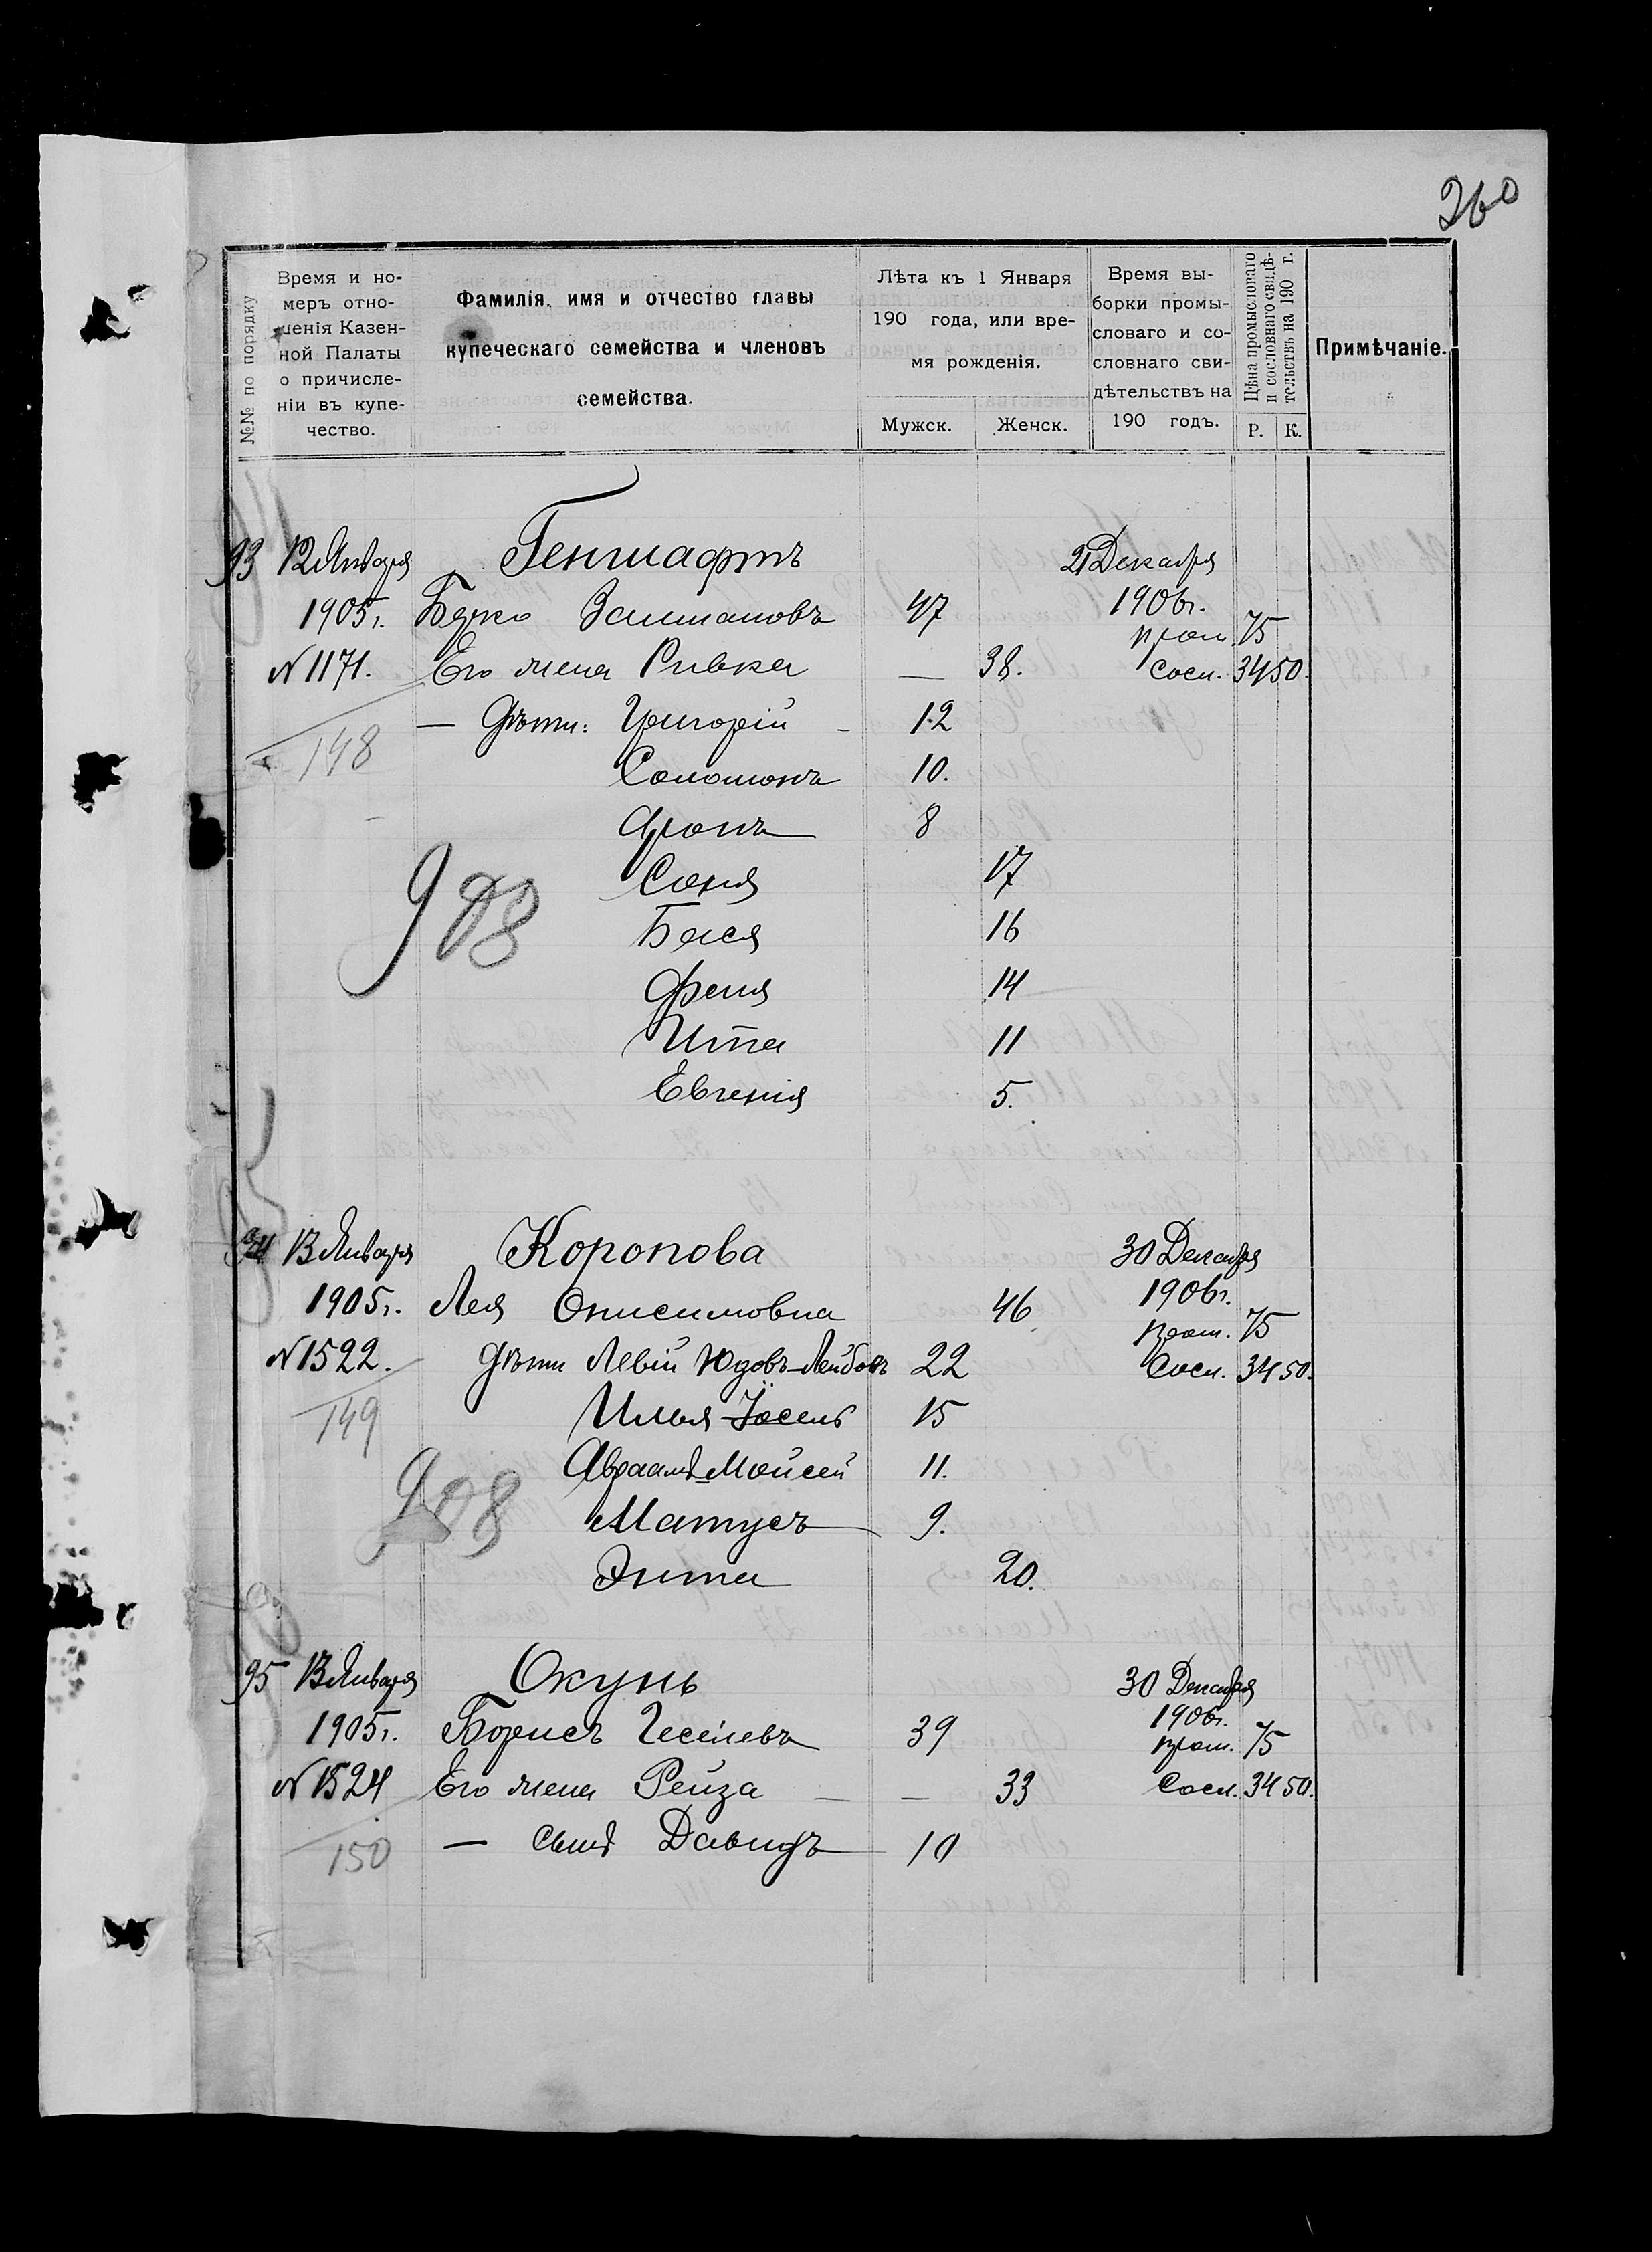 260
№№ по порядку
Время и но-
меръ отно-
шенія Казен-
ной Палаты
о причисле-
ніи въ купе-
чество.
Фамилія, имя и отчество главы
купеческаго семейства и членовъ
семейства.
Лѣта къ 1 Января
190 года, или вре-
мя рожденія.
Мужск. Женск.
Время вы-
борки промы-
словаго и со-
словнаго сви-
дѣтельствъ на
190 годъ.
Цѣна промысловаго
и сословнаго свидѣ-
тельствъ на 190 г.
Р. К.
Примѣчаніе.
93 12 Января Геншафтъ 21 Декабря
1905г. Берко Залмановъ 47 1906г.
пром. 75
N 1171. Его жена Ривка — 38. Сосл. 34 50.
148 — Дѣти: Григорій - 12
Соломонъ 10.
Аронъ 8
908 Соня 17
Бася 16
Феня 14
Ита 11
Евгенія 5.
94 13 Января Коропова 30 Декабря
1905г. Лея Онисимовна 46 1906г.
пром. 75
N 1522. Дѣти Левій Юдовъ-Лейбовъ 22 Сосл. 34 50.
149 Илья-Іосель 15
Авраамъ-Мойсей 11.
908 Матусъ 9.
Энта 20.
95 13 Января Окунь 30 Декабря
1905г. Борисъ Геселевъ 39 1906г.
пром. 75
N 1524 Его жена Рейза — — 33 Сосл. 34 50.
150 — Сынъ Давидъ 10